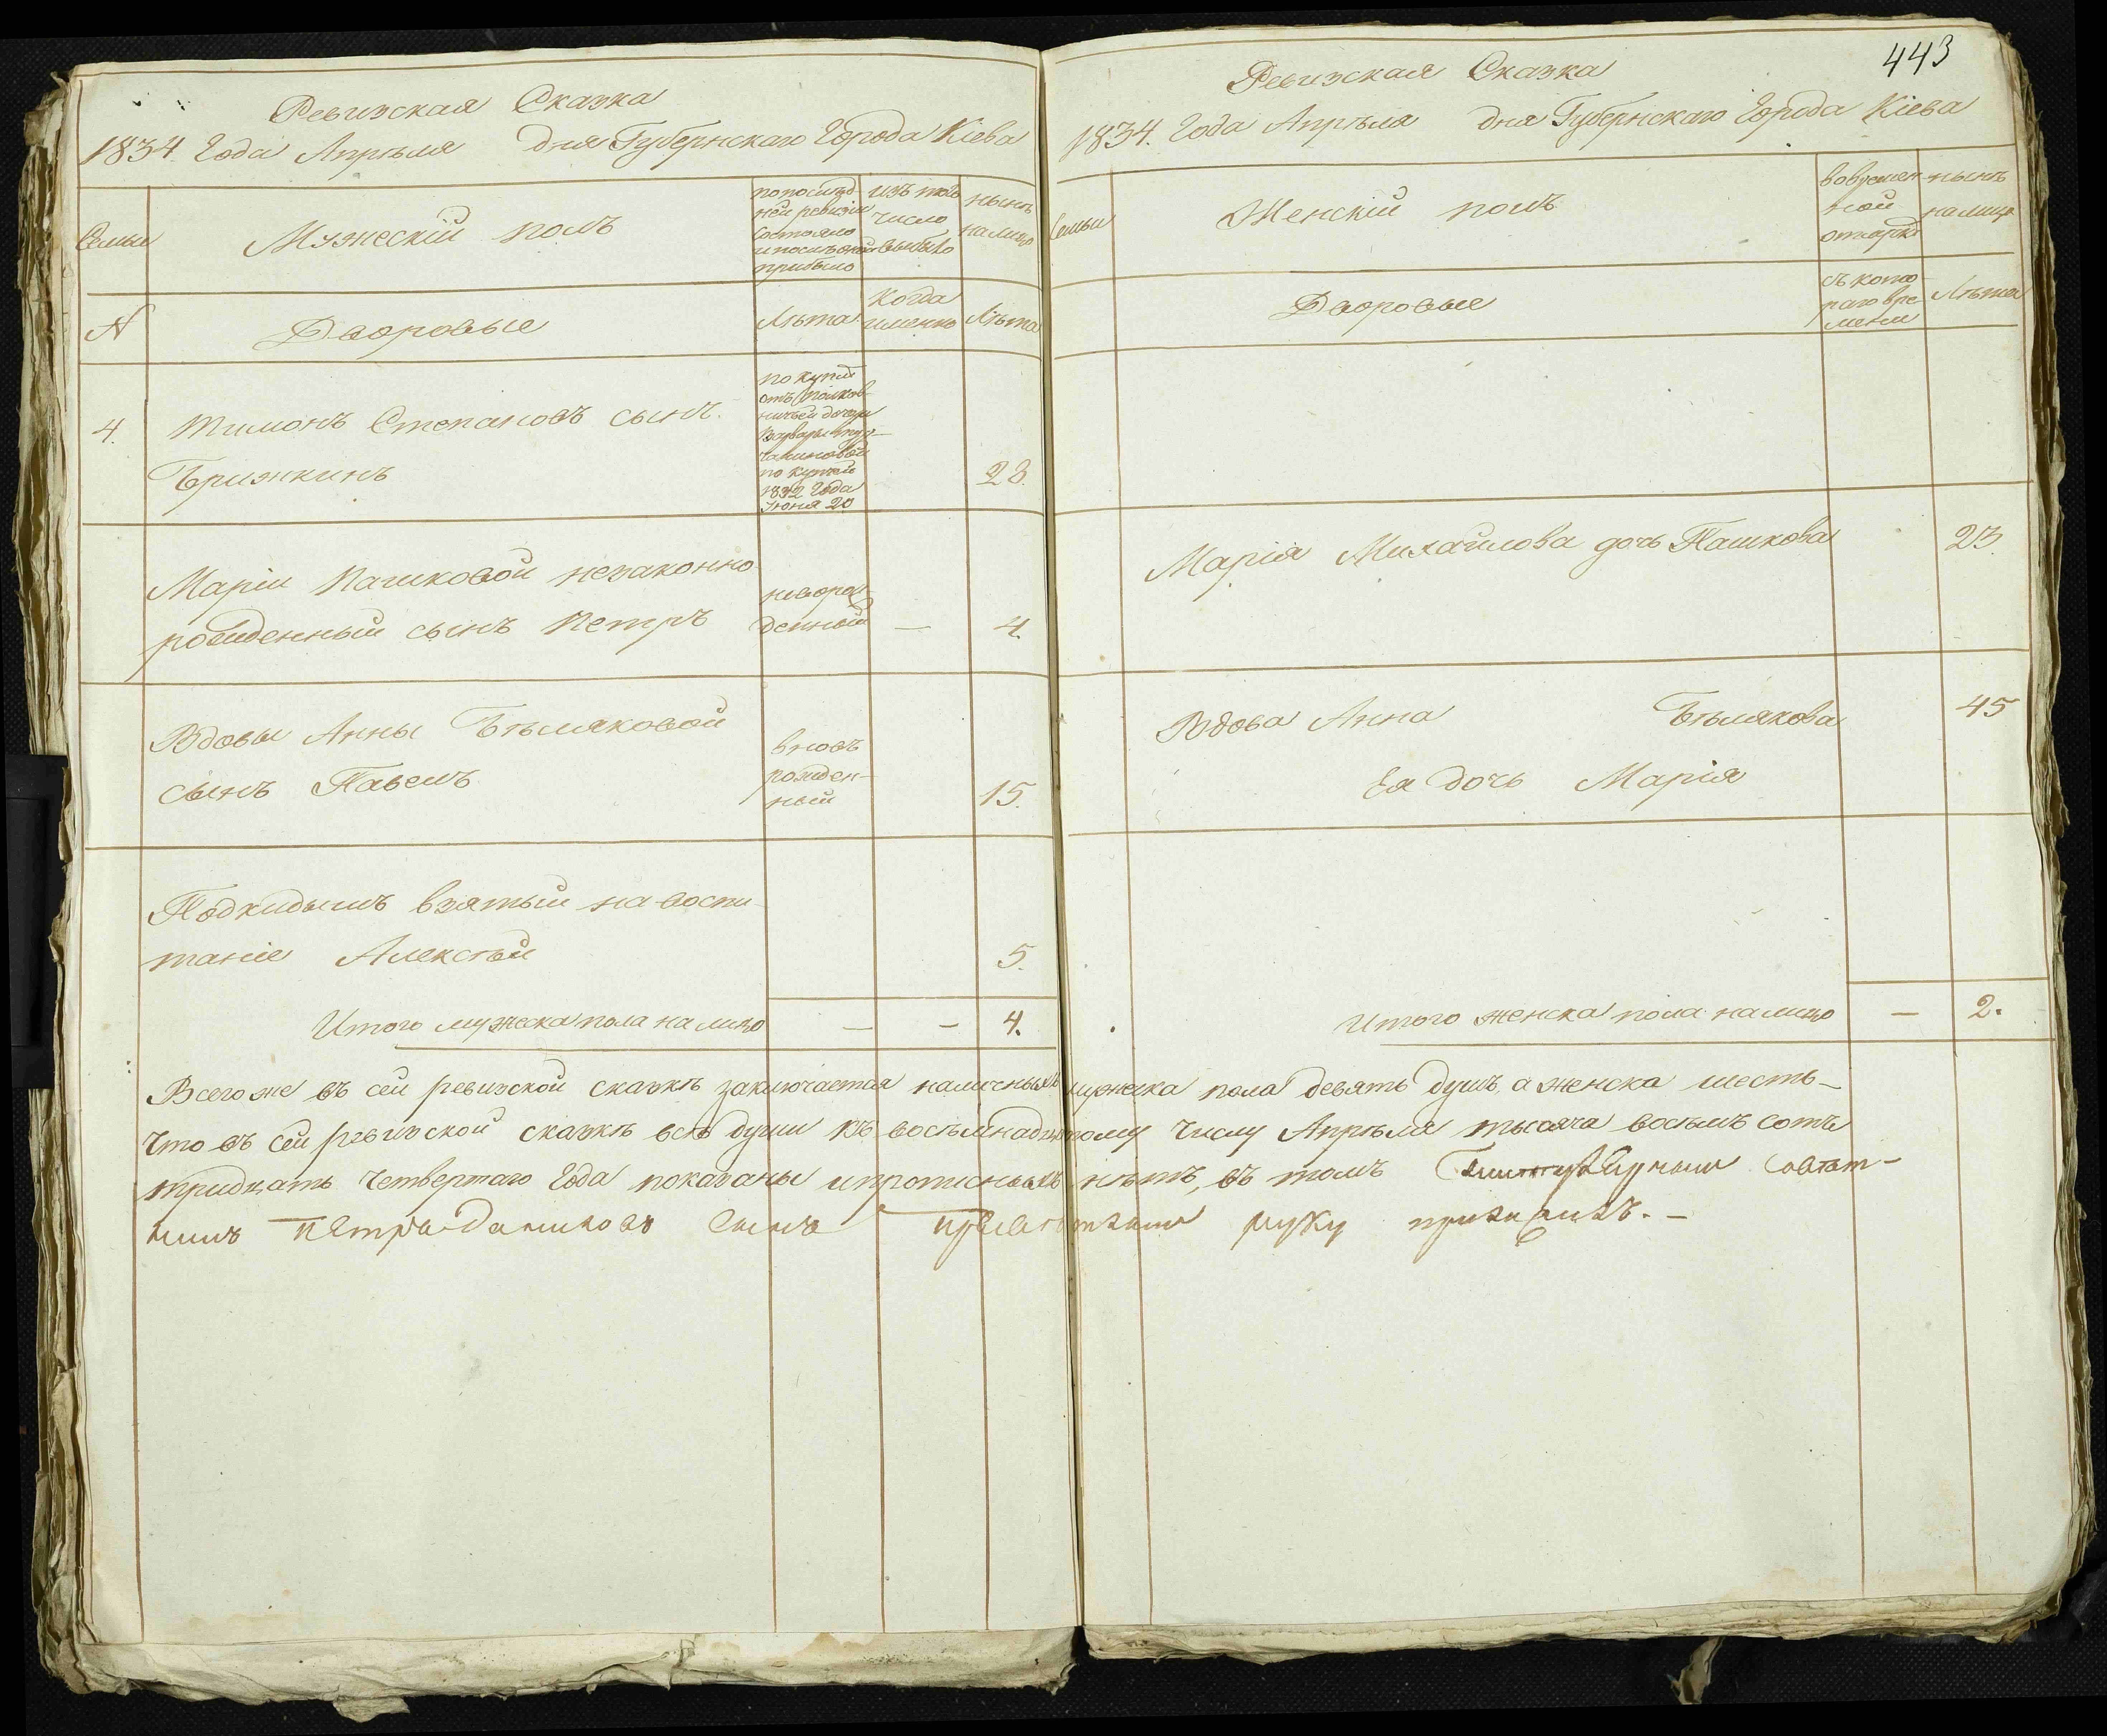 Ревизская Сказка
1834. Года Апрѣля дня Губернскаго Города Кіева
Семьи
Мужескій полъ
по послѣд-
ней ревизіи
состояло
и послѣ оной
прибыло
изъ того
число
выбыло
нынѣ
налицо
N
Дворовые
Лѣта
когда
именно
Лѣта
4.
Тимонъ Степановъ сынъ
Брижкинъ
по купчей
отъ Полков-
ничьей дочери
Варвары
по купчей
1832 Года
Июня 20
28.
Маріи Пашковой незаконно
рожденный сынъ Петръ
новорож-
денный
—
4.
Вдовы Анны Бѣляковой
сынъ Павелъ
вновь
рожден-
ный
15.
Подкидышъ взятый на воспи-
таніе Алексѣй
5.
Итого мужеска пола на лицо — — 4.
443
Ревизская Сказка
1834. Года Апрѣля дня Губернскаго Города Кіева
Семьи
Женскій полъ
во времен-
ной
отлучкѣ
нынѣ
налицо
Дворовые
съ кото-
раго вре-
мени
Лѣта
Марія Михайлова дочь Пашкова 23.
Вдова Анна Бѣлякова 45
Ея дочь Марія
Итого женска пола налицо — 2.
Всего же въ сей ревизской сказкѣ заключается наличныхъ мужеска пола девять душъ, а женска шесть —
что въ сей ревизской сказкѣ всѣ души къ восемнадцатому числу Апрѣля тысяча восемь сотъ
тридцать четвертаго Года показаны и прописныхъ нѣтъ, въ томъ Совѣт-
никъ Петръ Даниловъ сынъ руку приложилъ. —